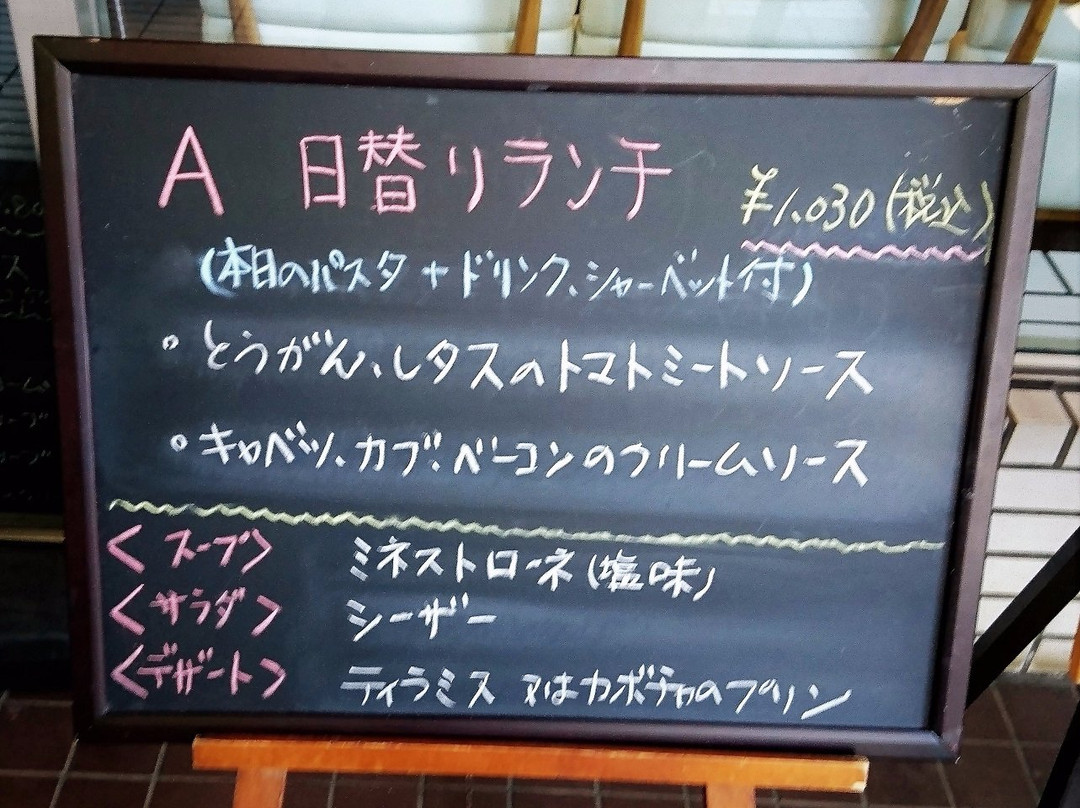 A 日替りランチ ¥1.030(税込)
(本日のパスタ + ドリンク、シャーベット付)
。とうがん、レタスのトマトミートソース
。キャベツ、カブ、ベーコンのクリームソース
<スープ> ミネストローネ(塩味)
<サラダ> シーザー
<デザート> ティラミス 又はカボチャのプリン